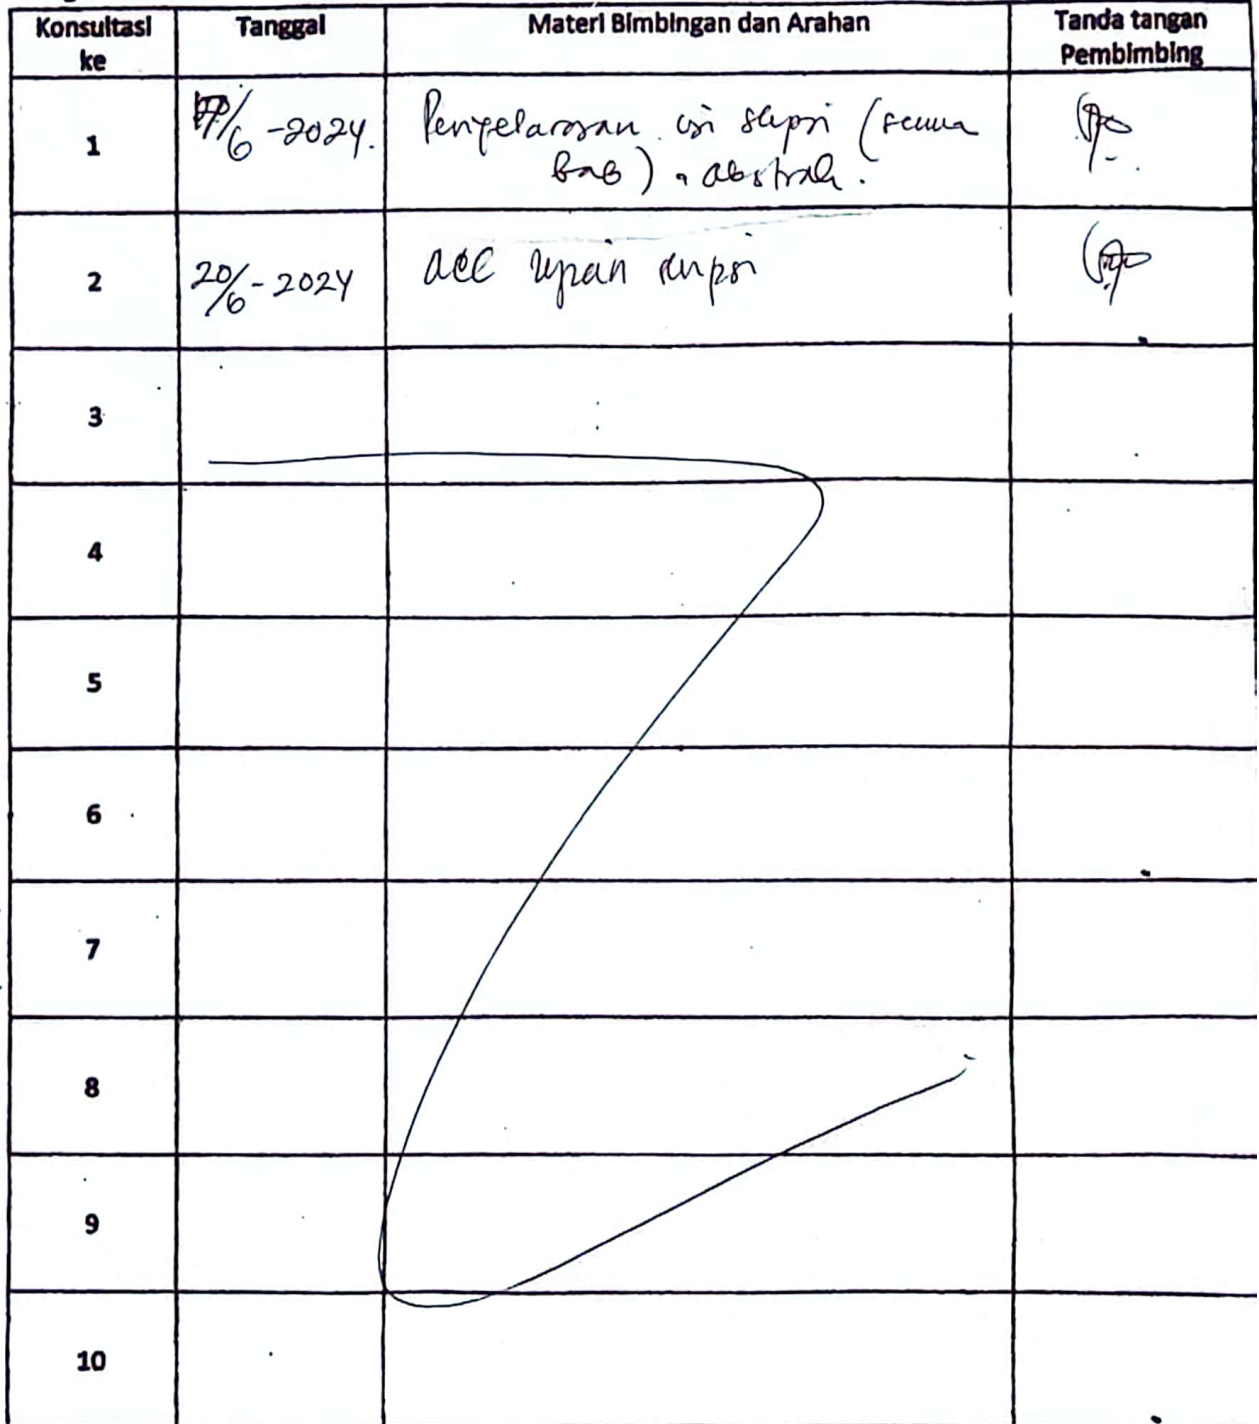 Konsultasi ke Tanggal Materi Bimbingan dan Arahan Tanda tangan Pembimbing
1 /6 -2024. Penyelarasan isi skripsi (semua
bab), abstrak.
2 20/6-2024 acc ujian skripsi
3
4
5
6
7
8
9
10